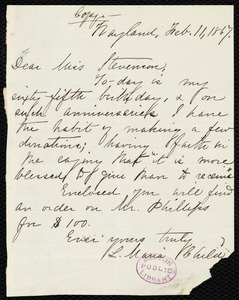 Copy.
Wayland, Feb. 11, 1867.
Dear Miss Stevenson,
To-day is my
sixty fifth birthday, & on
such anniversaries I have
the habit of making a few
donations; having faith in
the saying that it is more
blessed to give than to receive.
Enclosed you will find
an order on Mr. Phillips
for $100.
Ever yours truly,
L. Maria Child.
PUBLIC
LIBRARY